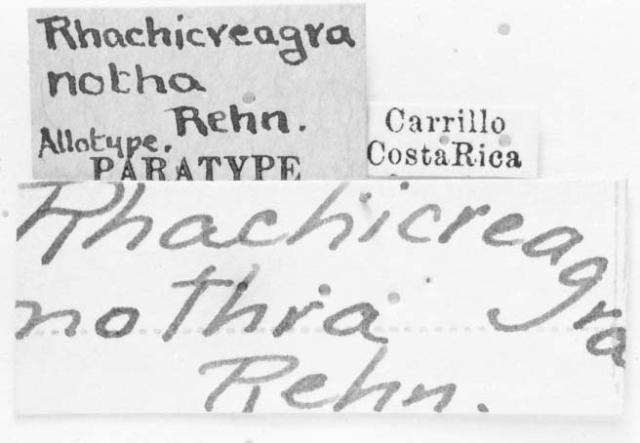 Rhachicreagra
notha
Rehn.
Allotype.
PARATYPE
Carrillo
Costa Rica
Rhachicreagra
nothra
Rehn.